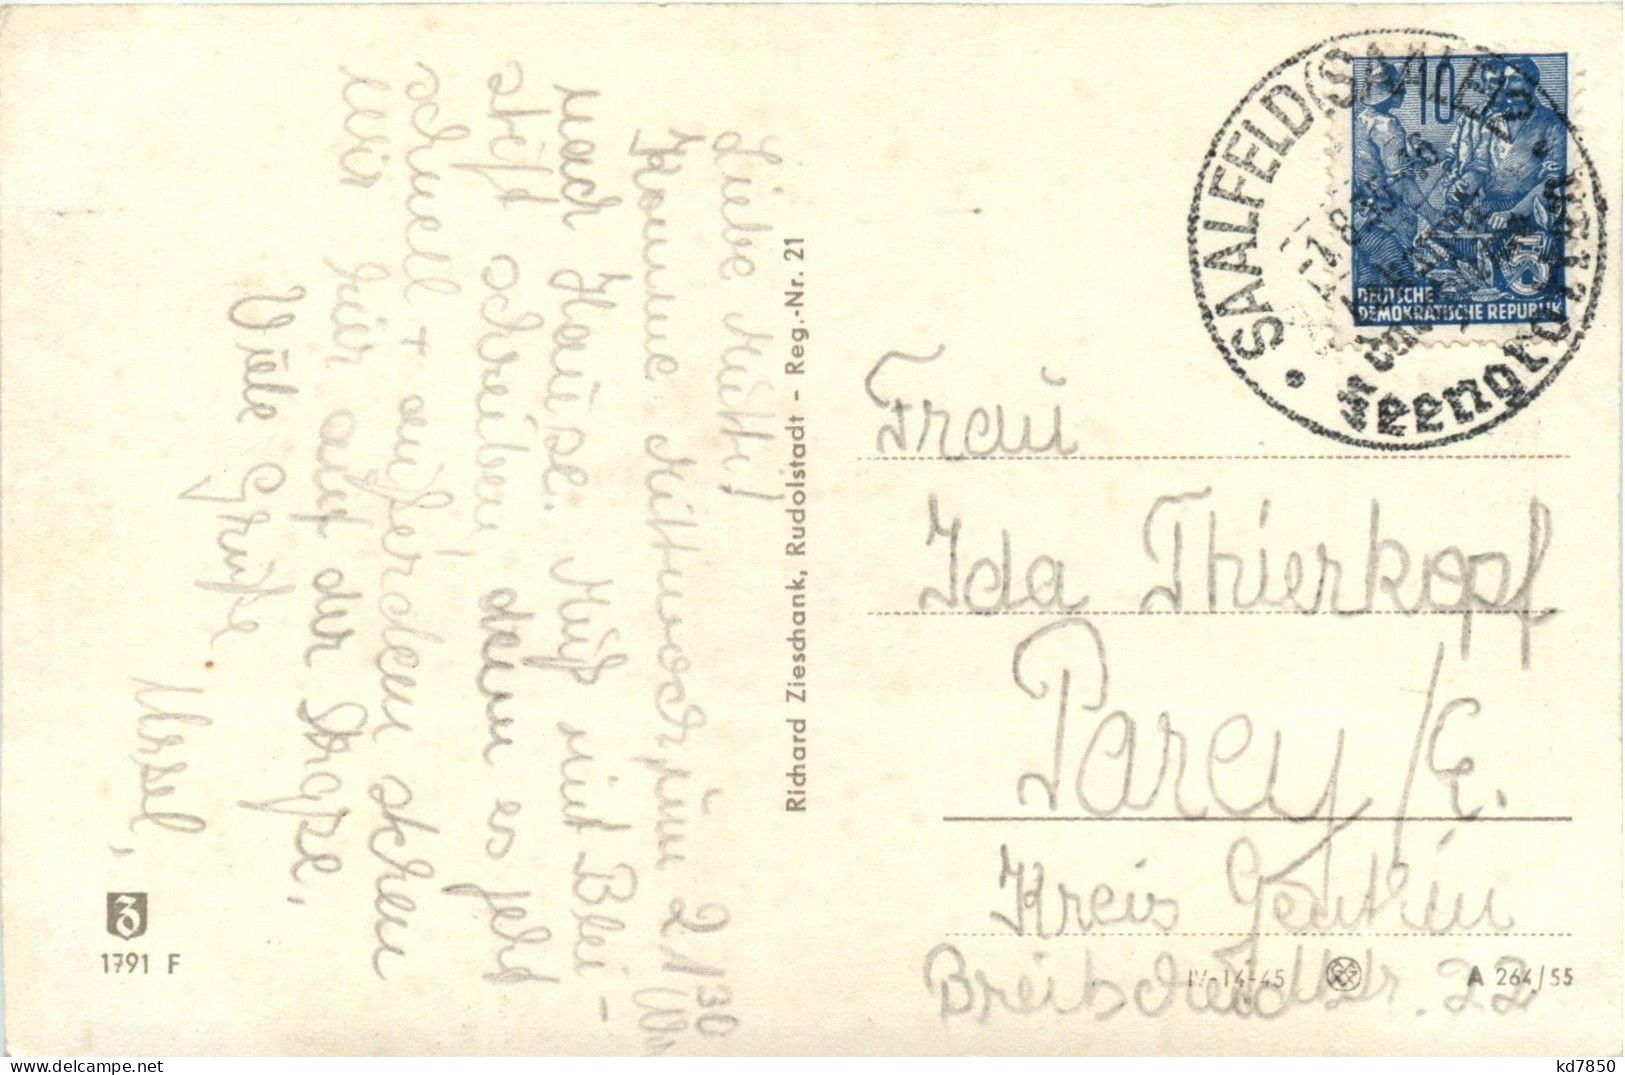 Liebe Mutti!
Komme Mittwoch um 21³⁰ Uhr
nach Hause. Muß mit Blei-
stift schreiben, denn es geht
schnell + außerdem stehen
wir hier auf der Straße.
Viele Grüße
Ursel,
Richard Zieschank, Rudolstadt - Reg.-Nr. 21
1791 F
SAALFELD (SAALE) 2
10
DEUTSCHE
DEMOKRATISCHE REPUBLIK
Frau
Ida Thierkopf
Parey/E.
Kreis Genthin
Breitscheidstr. 22
IV-14-45
A 264/55
kd7850